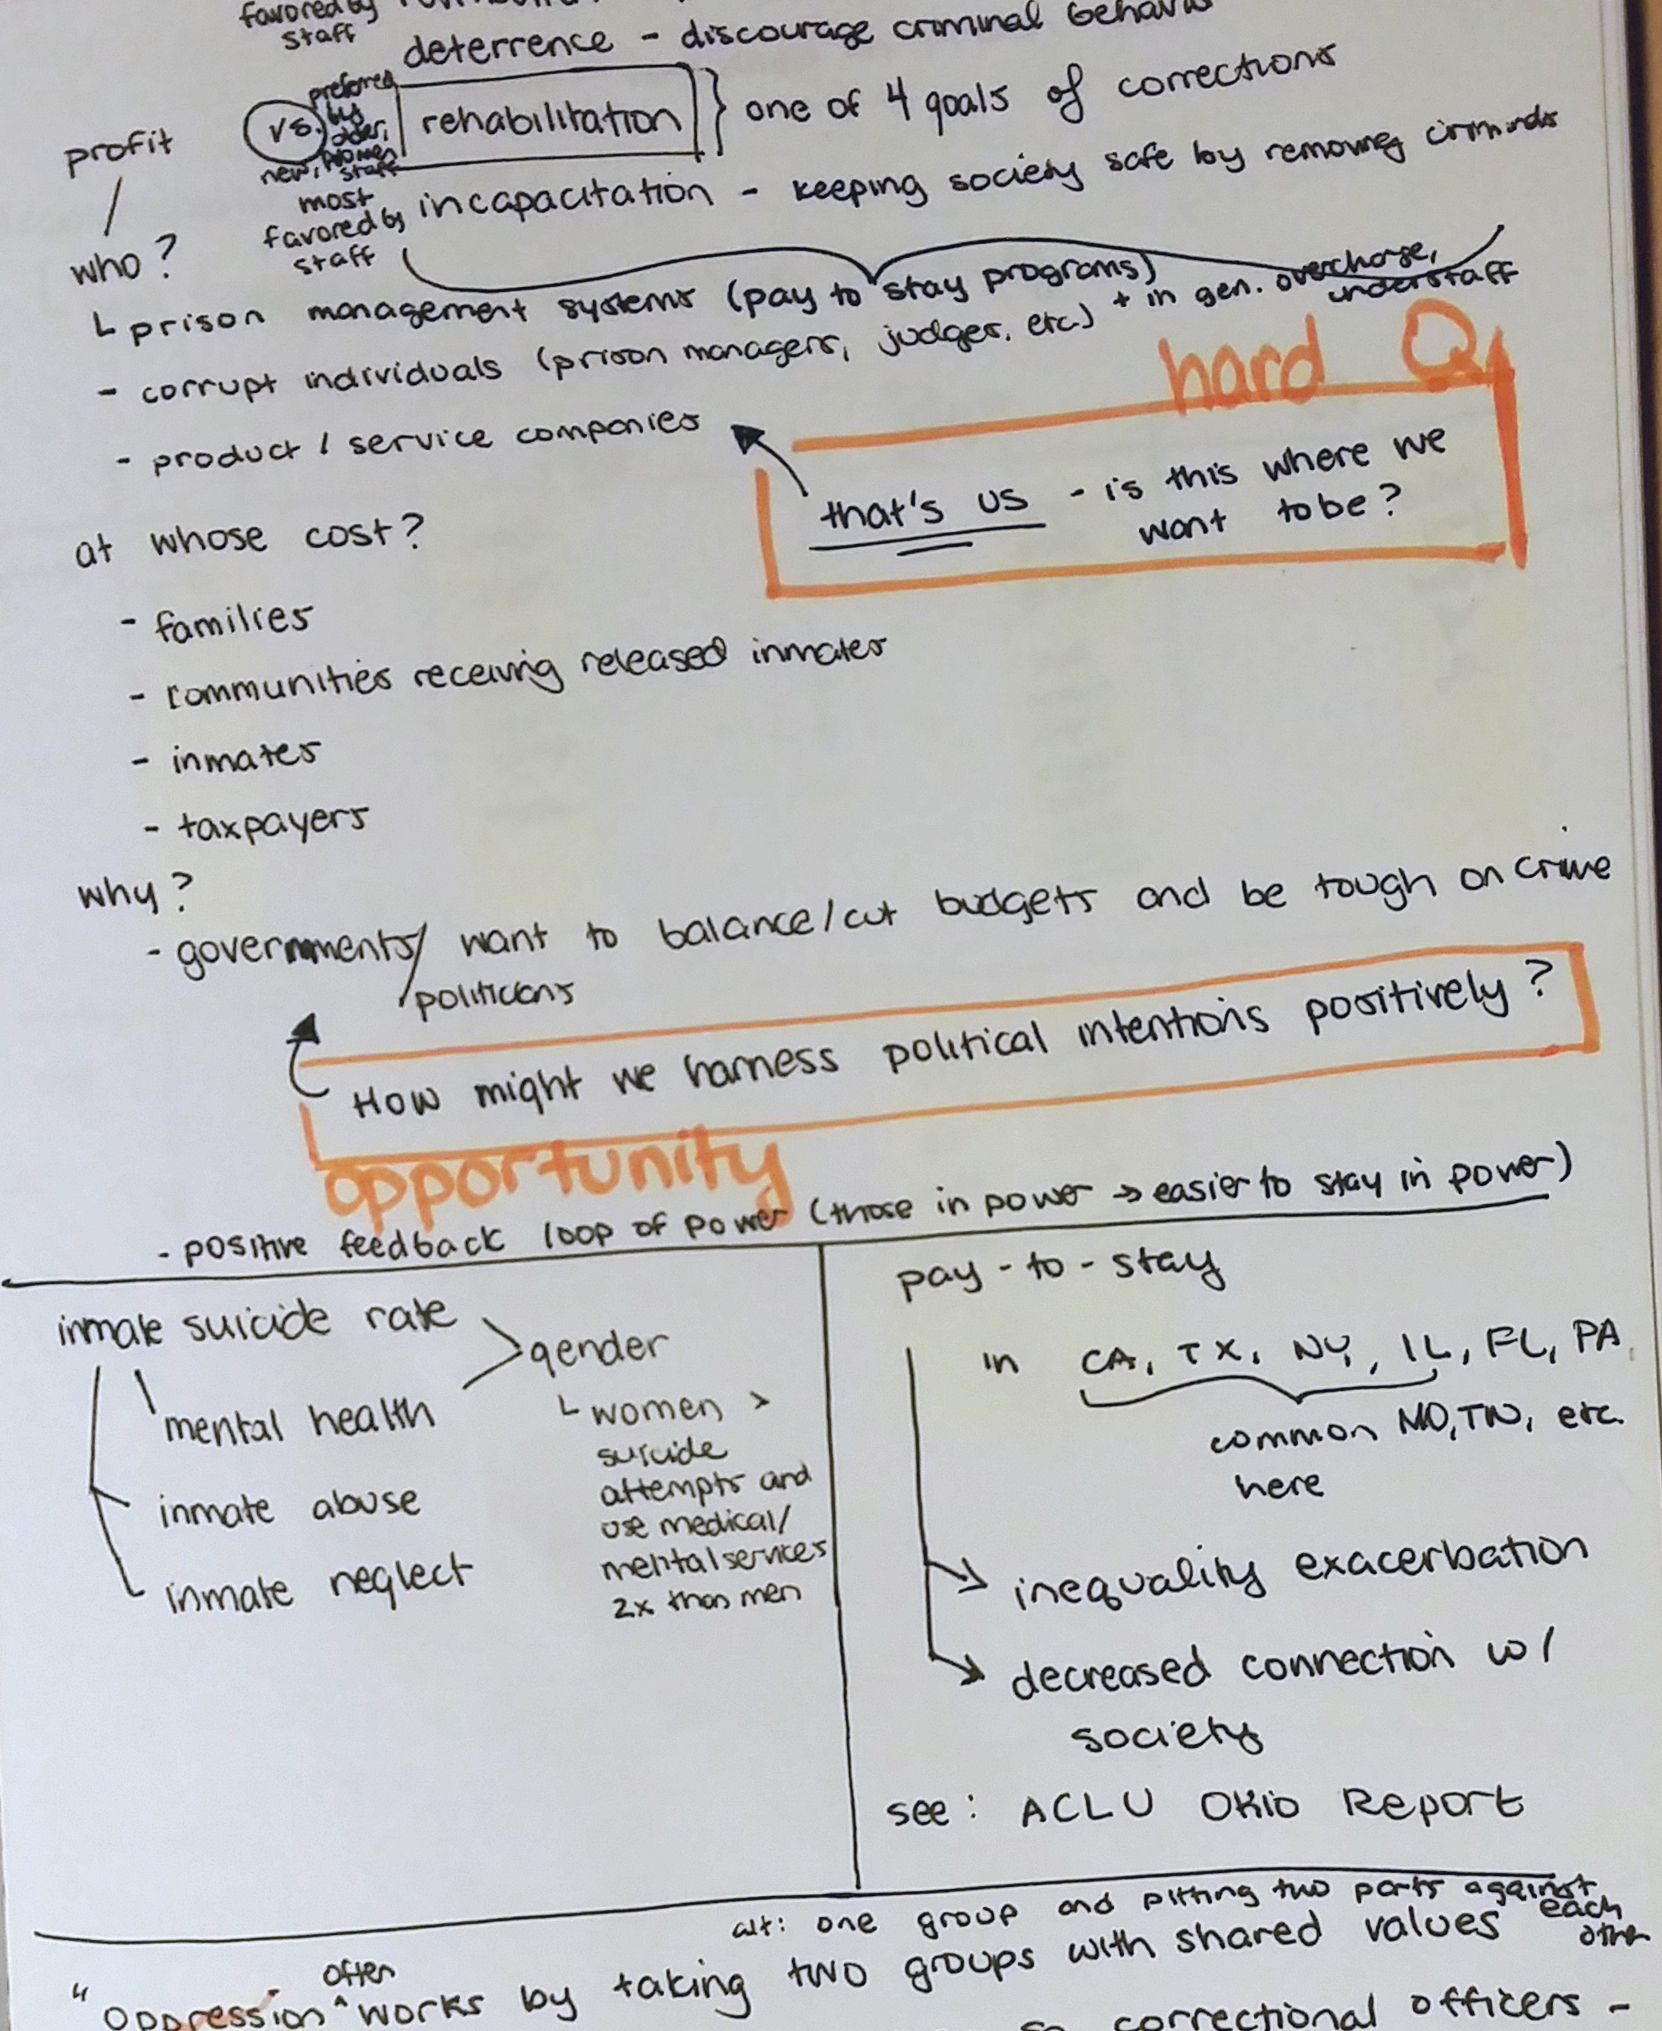 favored by
staff
deterrence - discourage criminal behavior
profit
vs.
preferred
by
older,
women
new, staff
rehabilitation } one of 4 goals of corrections
most
favored by
staff
incapacitation - keeping society safe by removing criminals
who?
prison management systems (pay to stay programs) + in gen. overcharge,
understaff
- corrupt individuals (prison managers, judges, etc.)
- product / service companies
hard Q
that's us - is this where we
want to be?
at whose cost?
- families
- communities receiving released inmates
- inmates
- taxpayers
why?
- governments/ want to balance/cut budgets and be tough on crime
politicians
How might we harness political intentions positively?
opportunity
- positive feedback loop of power (those in power → easier to stay in power)
inmate suicide rate
gender
mental health
women >
suicide
attempts and
use medical/
mental services
2x than men
inmate abuse
inmate neglect
pay-to-stay
in CA, TX, NY, IL, FL, PA,
common MO, TN, etc.
here
inequality exacerbation
decreased connection w/
society
see: ACLU Ohio Report
alt: one group and pitting two parts against
each
other
often
"Oppression ^ works by taking two groups with shared values
correctional officers -